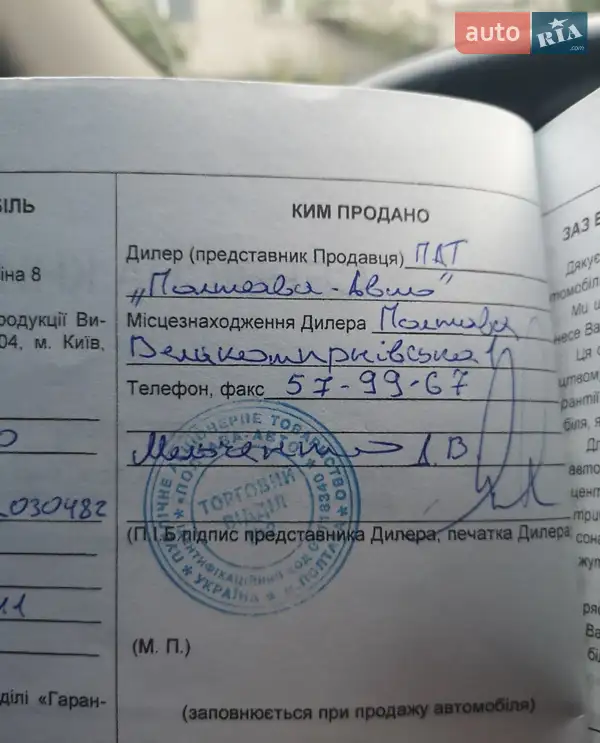 auto RIA .com
БІЛЬ
іна 8
родукції Ви-
04, м. Київ,
О
030482
11
ділі «Гаран-
КИМ ПРОДАНО
Дилер (представник Продавця) ПАТ
„Полтава - Авто"
Місцезнаходження Дилера Полтава
Великотирнівська 1
Телефон, факс 57-99-67
(П.І.Б.підпис представника Дилера, печатка Дилера
ПУБЛІЧНЕ АКЦІОНЕРНЕ ТОВАРИСТВО
* ПОЛТАВА-АВТО *
ТОРГОВИЙ
ВІДДІЛ
ІДЕНТИФІКАЦІЙНИЙ КОД
* УКРАЇНА * м.ПОЛТАВА
(М. П.)
(заповнюється при продажу автомобіля)
ЗАЗ В
Дякує
томобіл
Ми щ
несе Ва
Ця с
цтвом,
рантії
біля, я
авто
цент
три
сона
жут
ря
Ва
бі